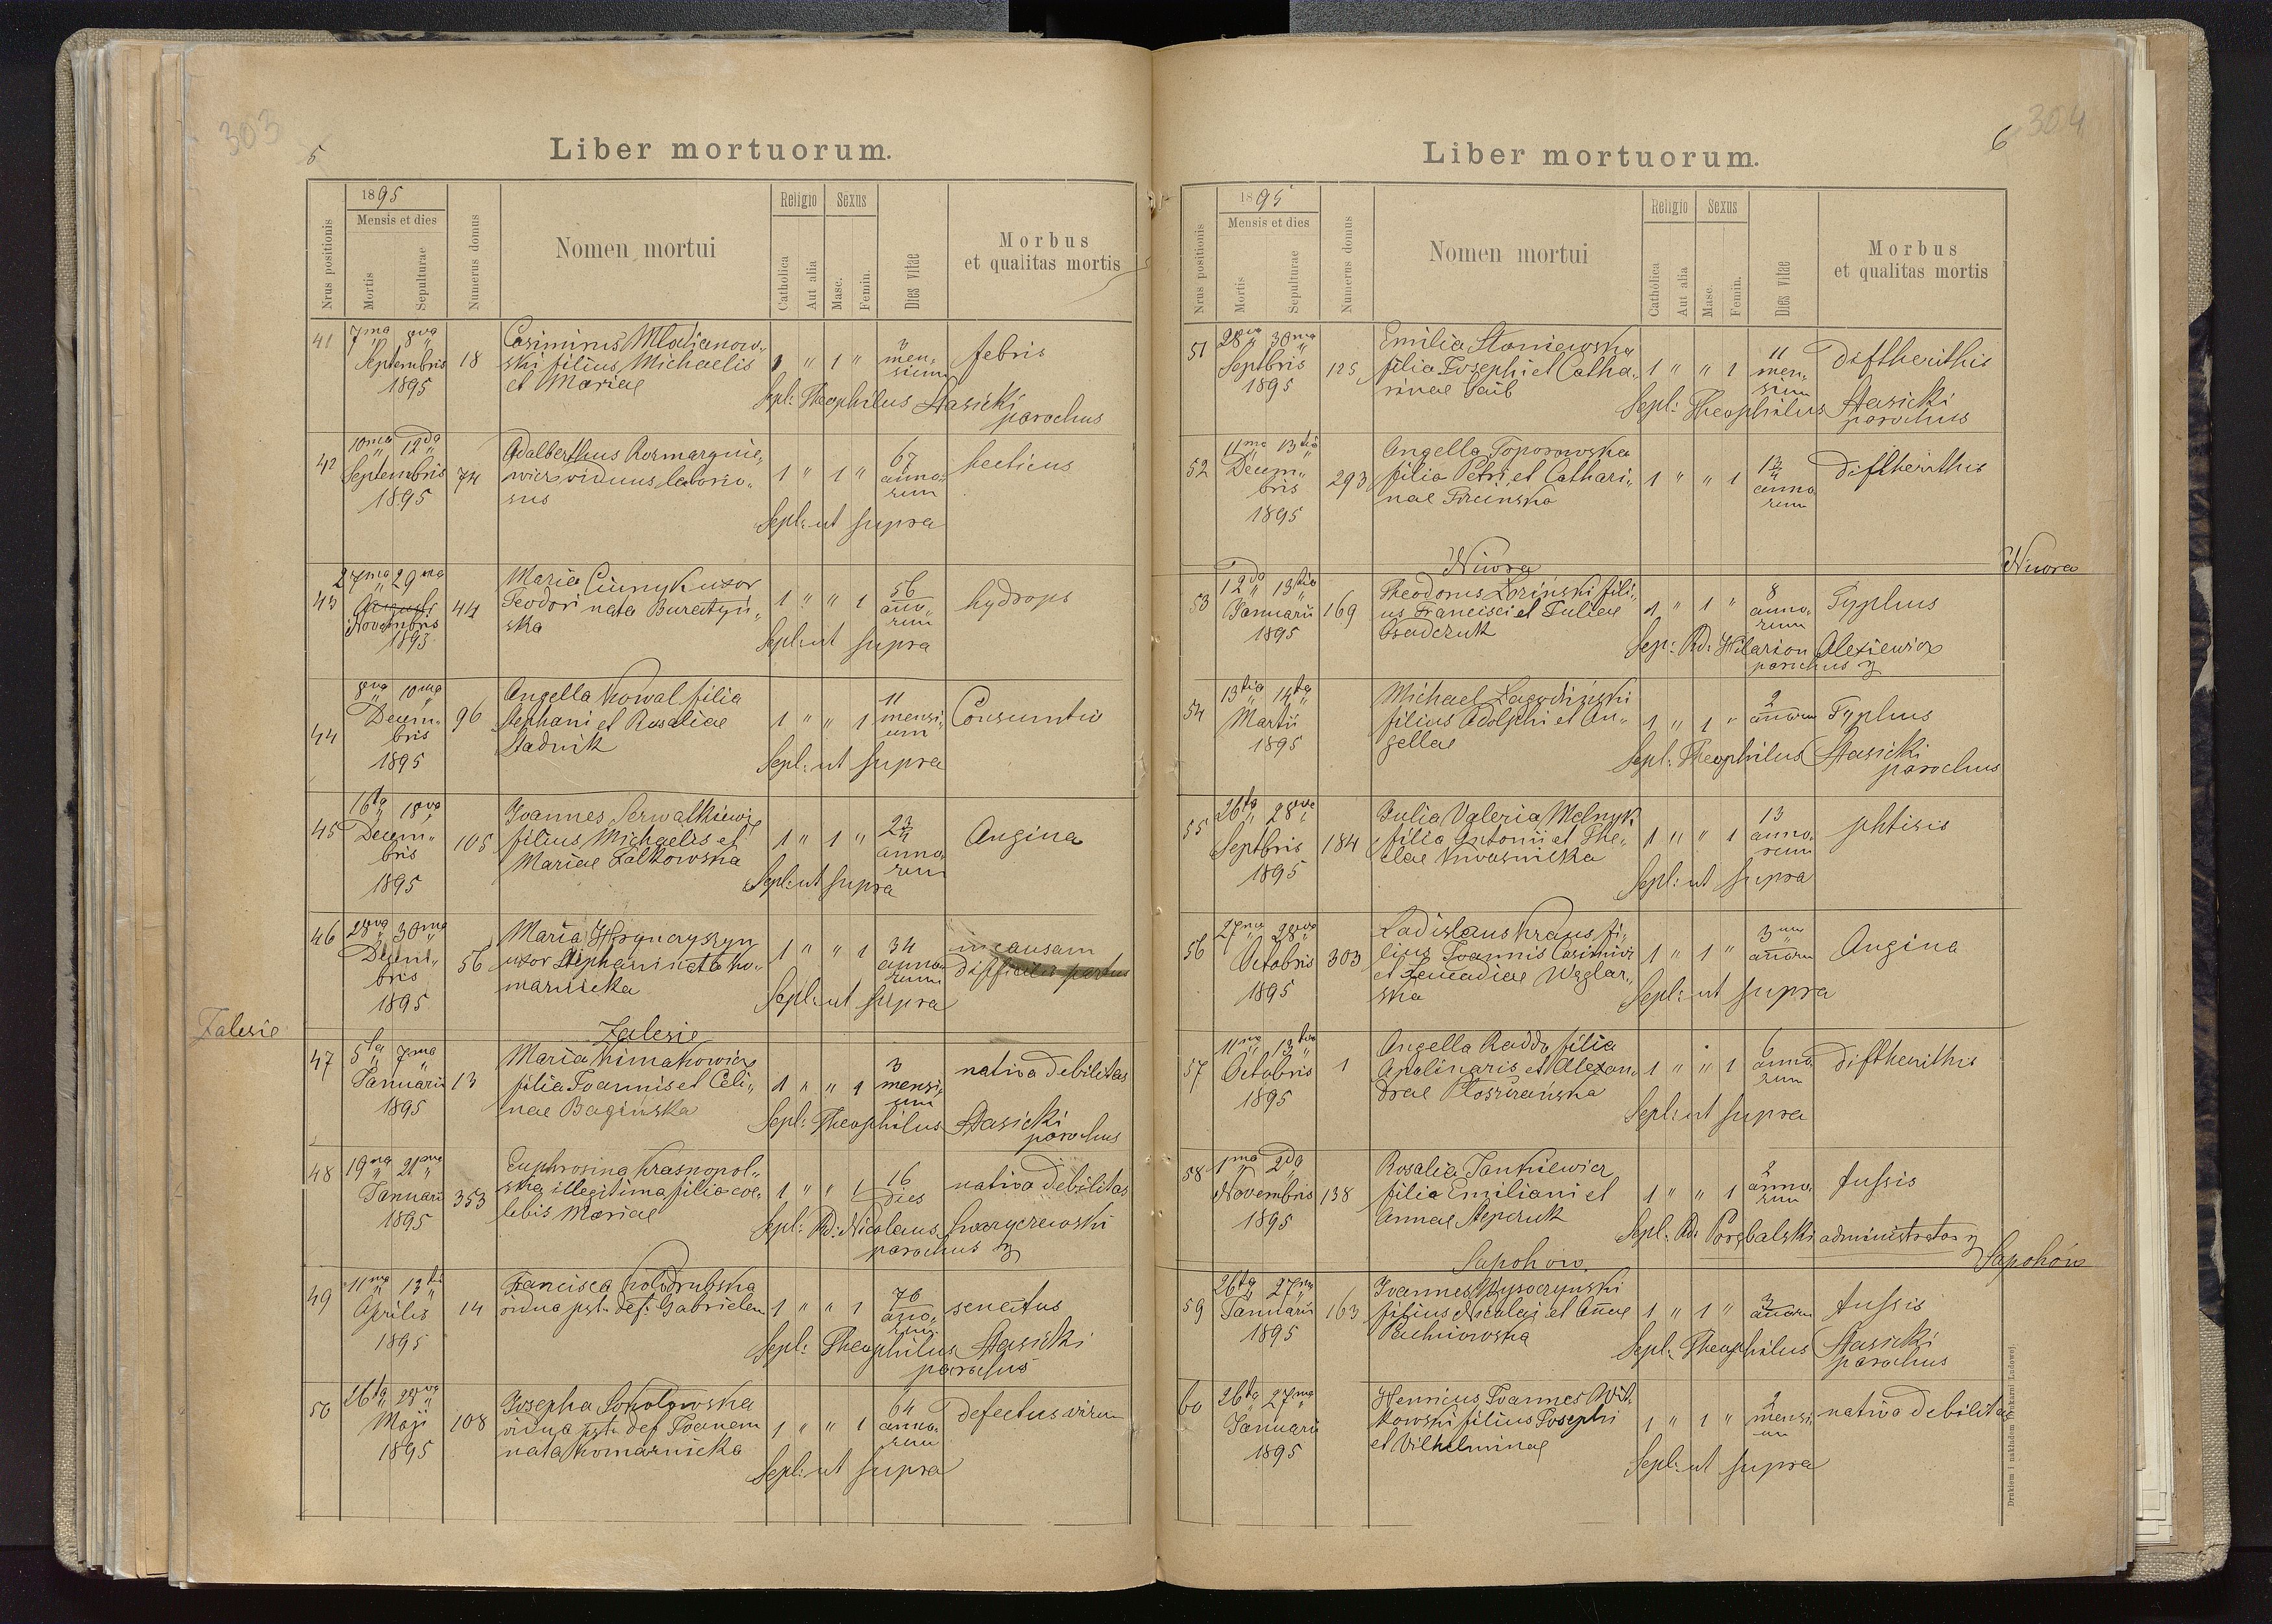 303
5
Liber mortuorum.
1895
Mensis et dies
Religio
Sexus
Nrus positionis
Mortis
Sepulturae
Numerus domus
Nomen mortui
Catholica
Aut alia
Masc.
Femin.
Dies vitae
Morbus
et qualitas mortis
41
7ma 8va
Septembris
1895
18
Casimirus Mladianow„
ski filius Michaelis
et Mariae
1 " 1 "
3
men„
sium
febris
Sepl: Theophilus Stasicki
parochus
42
10ma 12da
Septembris
1895
74
Adalberthus Rozmarynie„
wicz viduus laborio„
sus
1 " 1 "
67
anno„
rum
hecticus
Sepl: ut supra
43
27ma 29na
Augusti
Novembris
1895
44
Maria Ciunyk uxor
Teodori nata Buratyń„
ska
1 " " 1
56
ano„
rum
hydrops
Sepl: ut supra
44
8va 10ma
Decem„
bris
1895
96
Angella Kowal filia
Stephani et Rosaliae
Stadnik
1 " " 1
11
mensi„
um
Consumtio
Sepl: ut supra
45
16ta 18va
Decem„
bris
1895
105
Joannes Serwatkiewicz
filius Michaelis et
Mariae Zalkowska
1 " 1 "
2 3/4
anno„
rum
Angina
Sepl: ut supra
46
28va 30ma
Decem„
bris
1895
56
Maria Hryncyszyn
uxor Stephani nata Ko„
marnicka
1 " " 1
34
anno„
rum
in causam
difficilis partus
Sepl: ut supra
Zalesie
Zalesie
47
5ta 7ma
Januarii
1895
13
Maria Kimakowicz
filia Joannis et Celi„
nae Bagińska
1 " " 1
3
mensi„
um
nativa debilitas
Sepl: Theophilus Stasicki
parochus
48
19na 21ma
Januarii
1895
353
Euphrosina Krasnopol„
ska illegitima filia coe„
lebis Mariae
1 " " 1
16
Dies
nativa debilitas
Sepl: Rd: Nicolaus
parochus
49
11ma 13tia
Aprilis
1895
14
Francisca Kolodrubska
vidua pst. def: Gabrielem
1 " " 1
76
ano„
rum
senectus
Sepl: Theophilus Stasicki
parochus
50
26ta 28va
Maji
1895
108
Josepha Sokolowska
vidua pst. def Joanem
nata Komarnicka
1 " " 1
64
anno„
rum
defectus virum
Sepl: ut supra
304
6
Liber mortuorum.
1895
Mensis et dies
Religio
Sexus
Nrus positionis
Mortis
Sepulturae
Numerus domus
Nomen mortui
Catholica
Aut alia
Masc.
Femin.
Dies vitae
Morbus
et qualitas mortis
51
28va 30ma
Septbris
1895
125
Emilia Staniewska
filia Josephi et Catha„
rinae Gaub
1 " " 1
11
men„
sium
Diftherithis
Sepl: Theophilus Stasicki
parochus
52
11ma 13tia
Decem„
bris
1895
293
Angella Toporowska
filia Petri et Cathari„
nae
1 " " 1
anno„
rum
diftherithis
Niwra
Niwra
53
12da 13tia
Januarii
1895
169
Theodorus Loziński fili„
us Francisci et Juliae
Osadczuk
1 " 1 "
8
anno„
rum
Typhus
Sep: Rd: Hilarion Alexiewicz
parochus
54
13tia 14ta
Martii
1895
Michael Lagodziński
filius Adolphi et An„
gellae
1 " 1 "
2
anorum
Typhus
Sepl: Theophilus Stasicki
parochus
55
26ta 28va
Septbris
1895
184
Julia Valeria Melnyk
filia Antonii et The„
clae Kwasnicka
1 " " 1
13
anno„
rum
phtisis
Sepl: ut supra
56
27ma 28va
Octobris
1895
303
Ladislaus Kraus fi„
lius Joannis Casimiri
et Leucadiae Węglar„
ska
1 " 1 "
3um
anorum
Angina
Sepl: ut supra
57
11ma 13tia
Octobris
1895
1
Angella Radda filia
Apolinaris et Alexan„
drae Ploszczańska
1 " " 1
6
anno„
rum
diftherithis
Sepl: ut supra
58
1ma 2da
Novembris
1895
138
Rosalia Jankiewicz
filia Emiliani et
Annae Stepczuk
1 " " 1
2
anno„
rum
tussis
Sepl: Rd: Porębalski administrator
Sapohów
Sapohów
59
26ta 27ma
Januarii
1895
163
Joannes Wysoczynski
filius Nicolai et Annae
Pachniowska
1 " 1 "
3
anorum
tussis
Sepl: Theophilus Stasicki
parochus
60
26ta 27ma
Januarii
1895
Henricus Joannes Wit„
kowski filius Josephi
et Vilhelminae
1 " 1 "
2
mensi
um
nativa debilitas
Sepl: ut supra
Drukiem i nakładem Drukarni Ludowej.